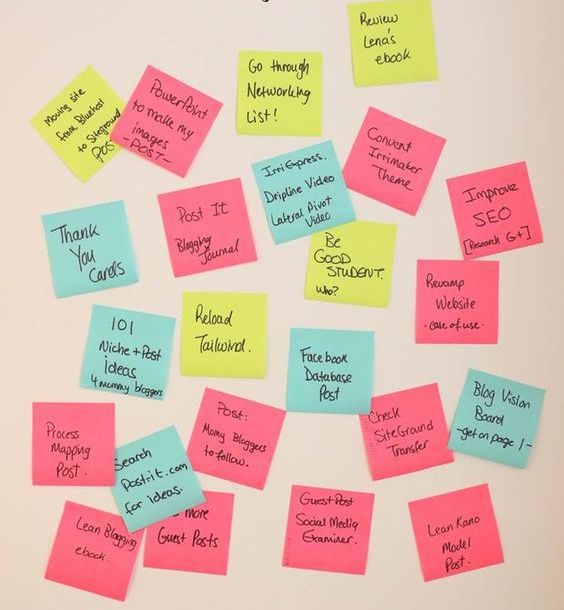 Review
Lena's
ebook
Go through
Networking
List!
Moving site
from Bluehost
to Siteground
POST
PowerPoint
to make my
images
-POST-
Convert
Irrimaker
Theme
Irri Express.
Dripline Video
Lateral Pivot
Video
Improve
SEO
[Research G+]
Thank
You
Cards
Post It
Blogging
Journal
Be
GOOD
STUDENT.
who?
Revamp
Website
-ease of use-
101
Niche + Post
ideas
4 mommy bloggers
Reload
Tailwind.
Facebook
Database
Post
Blog Vision
Board
-get on page 1-
Process
Mapping
Post.
Post:
Momy Bloggers
to follow.
Check
SiteGround
Transfer
Search
Post-it.com
for ideas.
more
Guest Posts
Lean Blogging
ebook.
Guest Post
Social Media
Examiner.
Lean Kano
Model
Post.